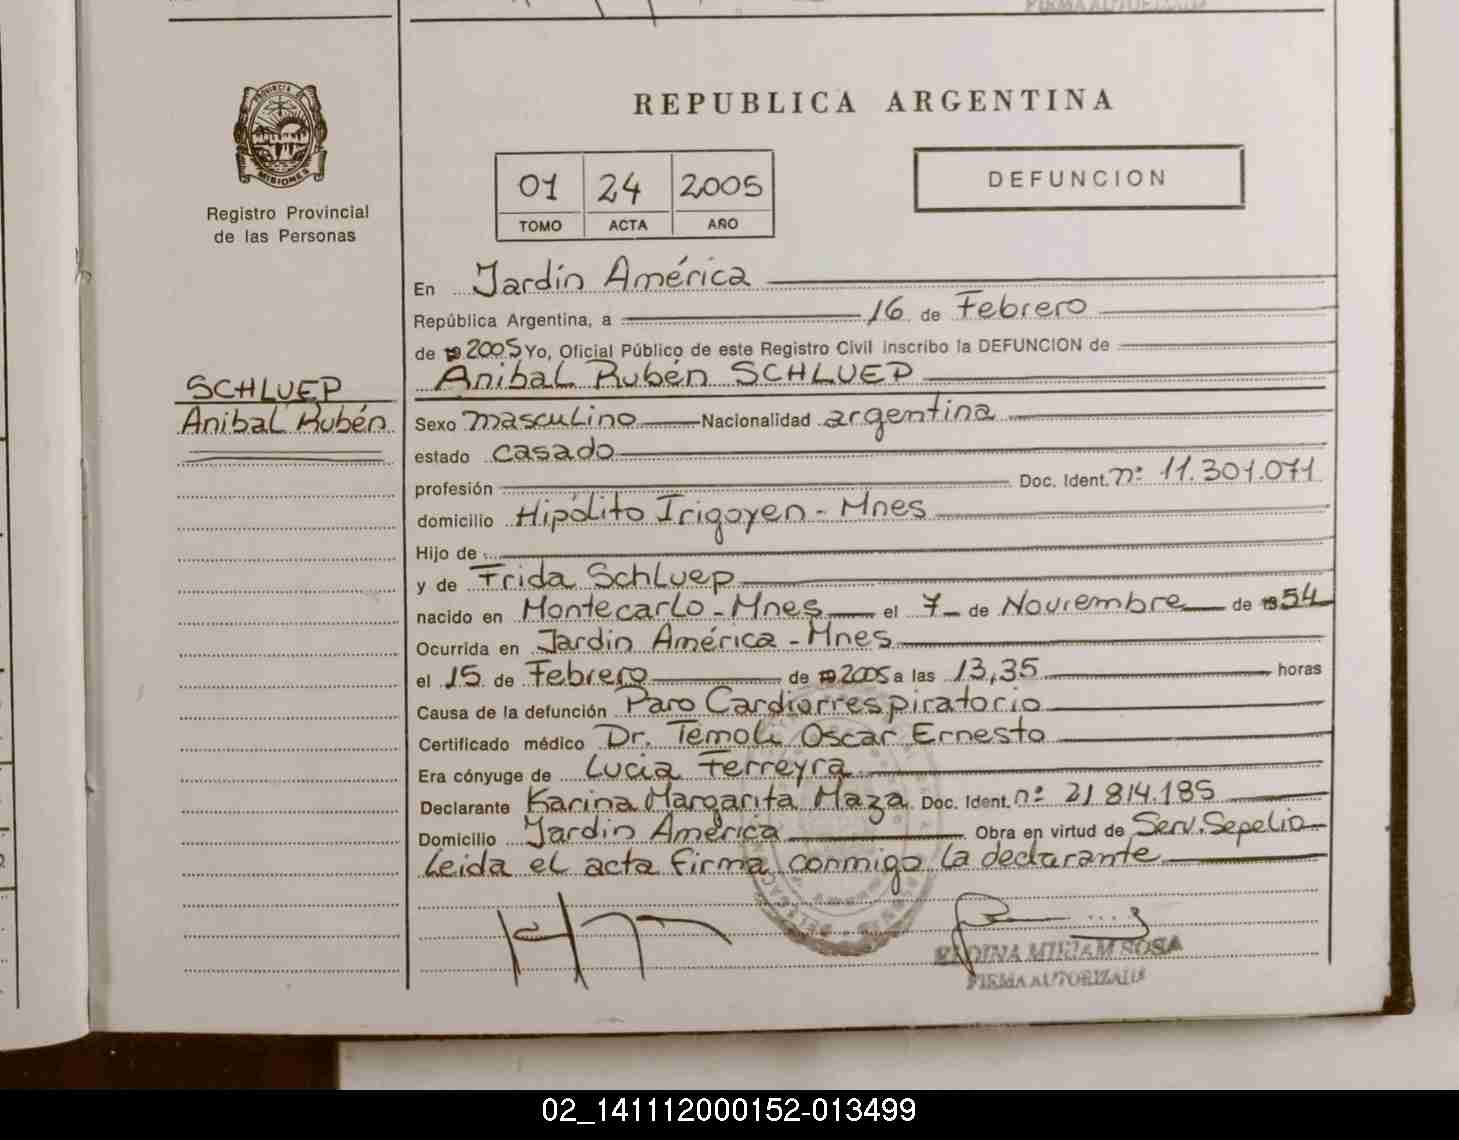 PROVINCIA DE
MISIONES
Registro Provincial
de las Personas
SCHLUEP
Anibal Rubén
FIRMA AUTORIZADA
REPUBLICA ARGENTINA
01 24 2005
TOMO ACTA AÑO
DEFUNCION
En Jardín América
República Argentina, a 16 de Febrero
de 2005 Yo, Oficial Público de este Registro Civil inscribo la DEFUNCION de
Anibal Rubén SCHLUEP
Sexo masculino Nacionalidad argentina
estado casado
profesión Doc. Ident. nº 11.301.071
domicilio Hipólito Irigoyen - Mnes
Hijo de
y de Frida Schluep
nacido en Montecarlo - Mnes el 7 de Noviembre de 1954
Ocurrida en Jardín América - Mnes
el 15 de Febrero de 2005 a las 13,35 horas
Causa de la defunción Paro Cardiorrespiratorio
Certificado médico Dr. Temoli Oscar Ernesto
Era cónyuge de Lucia Ferreyra
Declarante Karina Margarita Maza Doc. Ident. nº 21.814.185
Domicilio Jardín América Obra en virtud de Serv. Sepelio
Leída el acta firma conmigo la declarante
MIRIAM SOSA
FIRMA AUTORIZADA
02_141112000152-013499